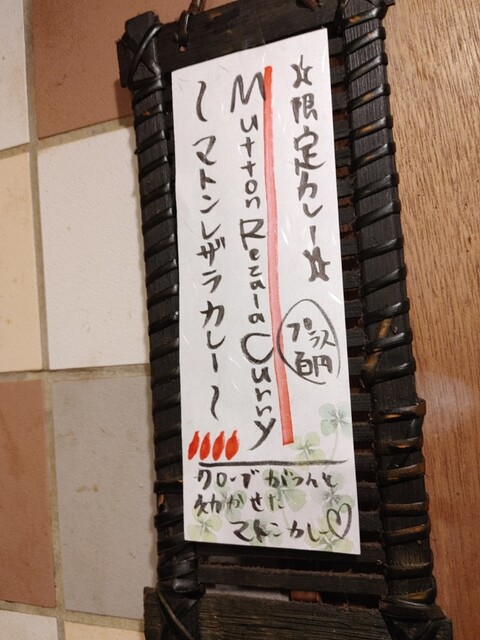 ☆限定カレー☆
プラス
百円
Mutton Rezala Curry
〜マトンレザラカレー〜
クローブがつんと
効かせた
マトンカレー♡